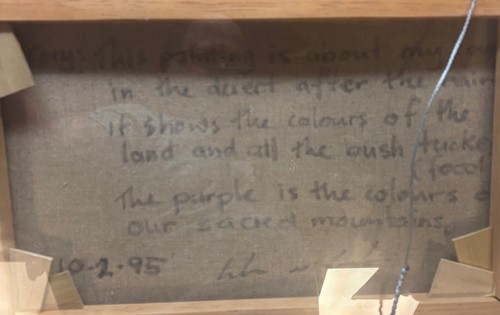 Story: This painting is about my
in the desert after the rain
it shows the colours of the
land and all the bush tucke
(food
The purple is the colours o
our sacred mountains.
10.2.95